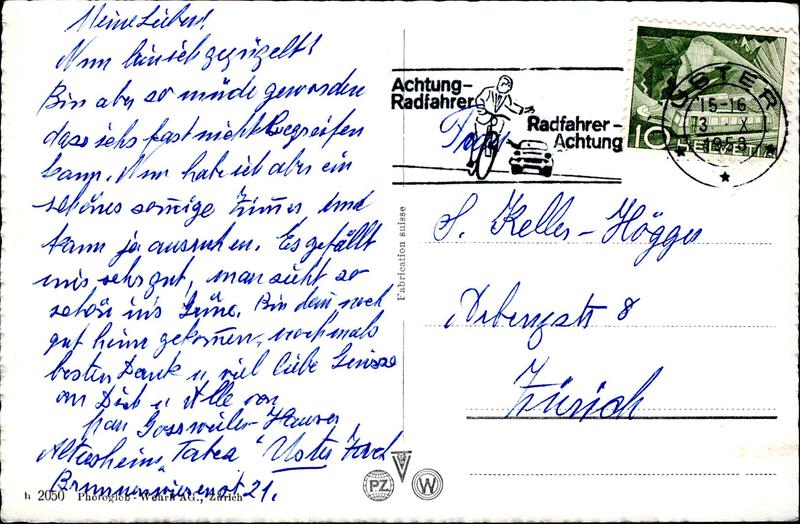 Meine Lieben!
Nun bin ich gezügelt!
Bin aber so müde geworden
dass ichs fast nicht begreifen
kann. Nun hab ich aber ein
schönes sonniges Zimmer und
kann ja ausruhen. Es gefällt
mir sehr gut, man sieht so
schön ins Grüne. Bin dann noch
gut heim gekommen, nochmals
besten Dank u. viel liebe Grüsse
an Dich u. Alle von
Frau Gossweiler-Hauser
Altersheim "Tabea" Uster Zürch
Brunnenwiesenst 21.
h 2050 Photoglob-Wehrli AG., Zürich
Fabrication suisse
PZ
W
Achtung-
Radfahrer
Radfahrer-
Achtung
USTER
15-16
3 X
1953
10 HELVETIA
S. Keller-Högger
Arbenzstr 8
Zürich